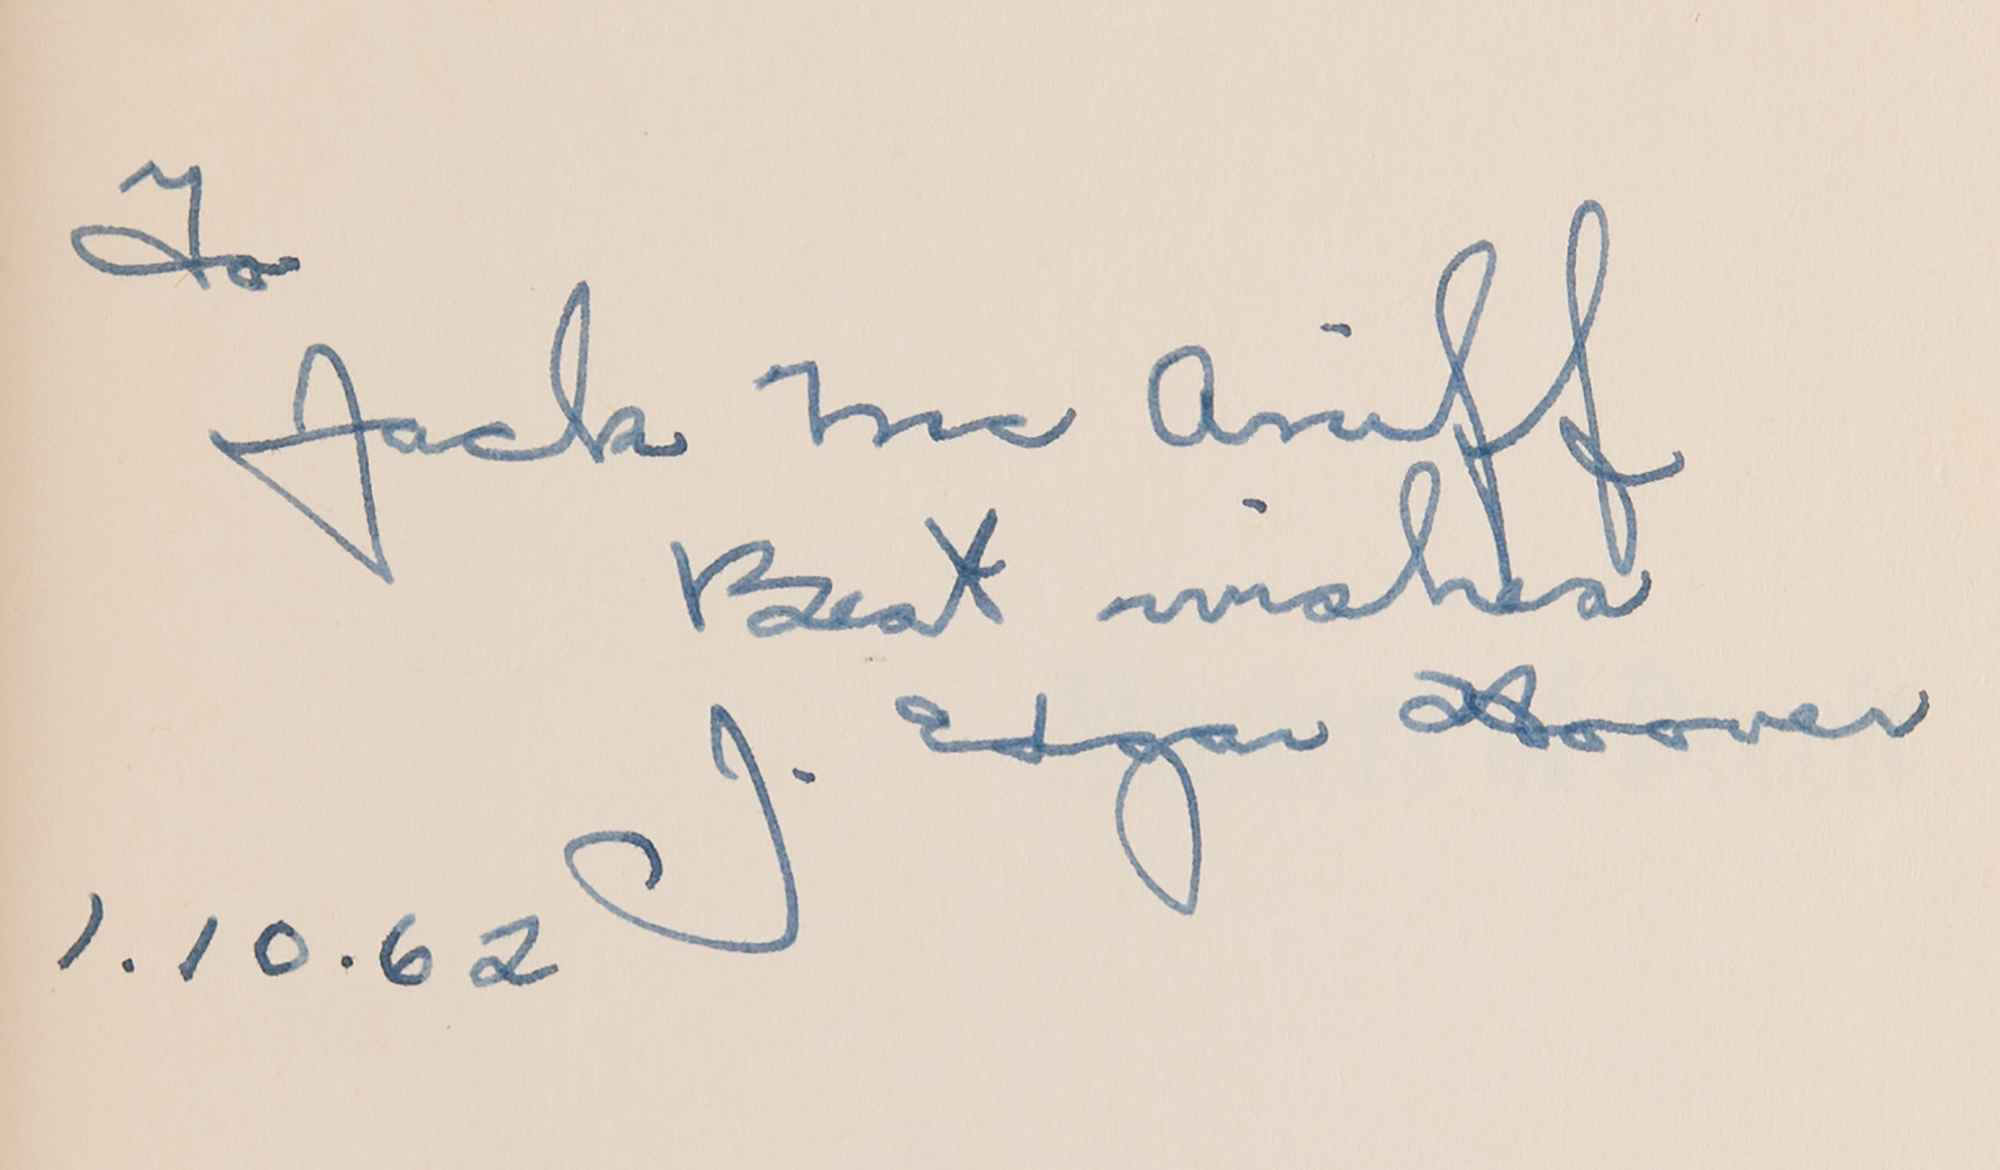 To
Jack Mc Ariff
Best wishes
J. Edgar Hoover
1.10.62